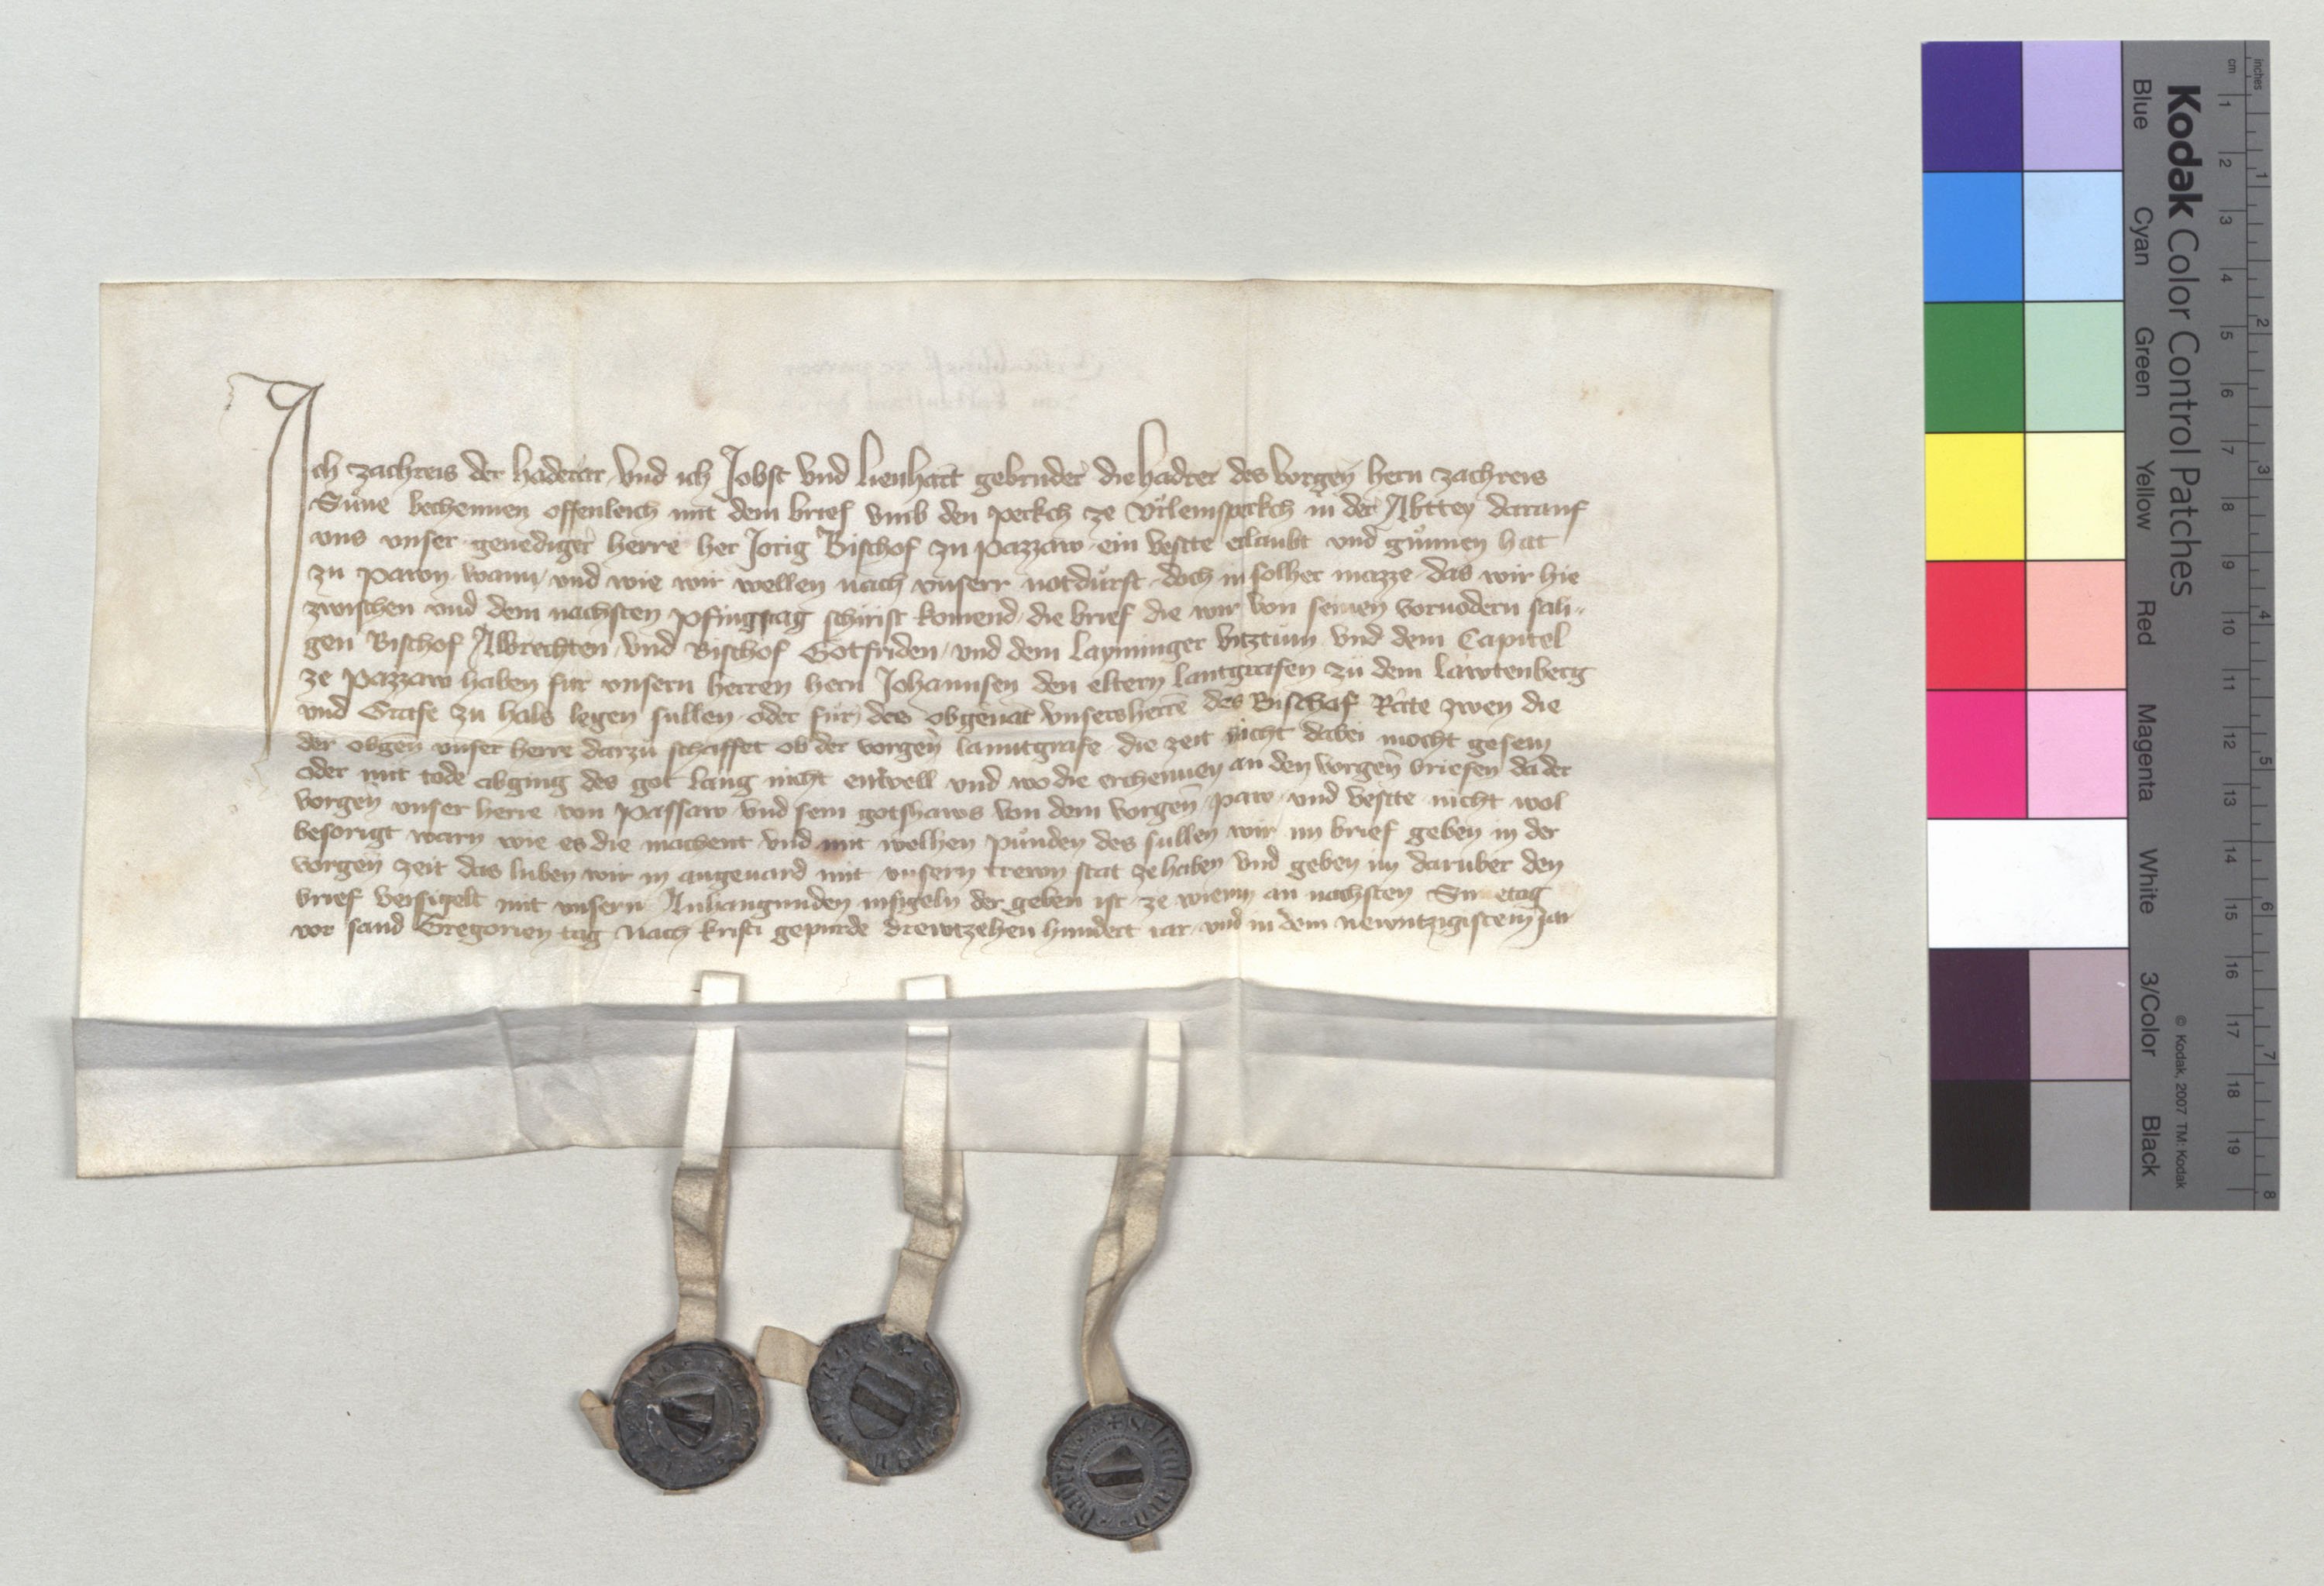 Ich zachreis der haderær und ich Jobst und lienhart gebruder die hadrer des vorgen hern zachreis
Sune bechennen offenleich mit dem brief umb den perkch ze vilemsperkch in der Abttey darauf
uns unser genediger herre her Jorig Bischof zu pazzaw ein vestte erlaubt und gunnen hat
zu pawn wann und wie wir wellen nach unserr notdurft doch in solher mazze das wir hie
zwischen und dem nachsten pfingstag schirist komend die brief die wir von seinen vorvodern sali-
gen Bischof Albrechten und Bischof Gotfriden und dem layminger vitztum und dem Capitel
ze pazzaw haben fur unsern herren hern Johannsen den eltern lantgrafen zu dem lawtenberg
und Grafe zu hals legen sullen oder fur des obgenat unsers herre des Bischof Râte zwen die
der obgen unser herre darzu schaffet ob der vorgen lanntgrafe die zeit nicht dabei mocht gesein
oder mit tode abging des got lang nicht enwell und wo die erchennen an den vorgen briefen da der
vorgen unser herre von passaw und sein gotshaws von dem vorgen paw und vestte nicht wol
besorigt warn wie es die machent und mit welhen punden des sullen wir im brief geben in der
vorgen zeit das luben wir in angevard mit unsern trewn stat ze haben und geben im daruber den
brief versigelt mit unsern Anhangunden insigeln der geben ist ze wienn an nachsten
vor sand Gregorien tag nach kristi gepurde drewtzehen hundert iar und in dem newntzigistem Jar
Kodak Color Control Patches
Blue Cyan Green Yellow Red Magenta White 3/Color Black
© Kodak, 2007 TM: Kodak
cm 1 2 3 4 5 6 7 8 9 10 11 12 13 14 15 16 17 18 19
inches 1 2 3 4 5 6 7 8